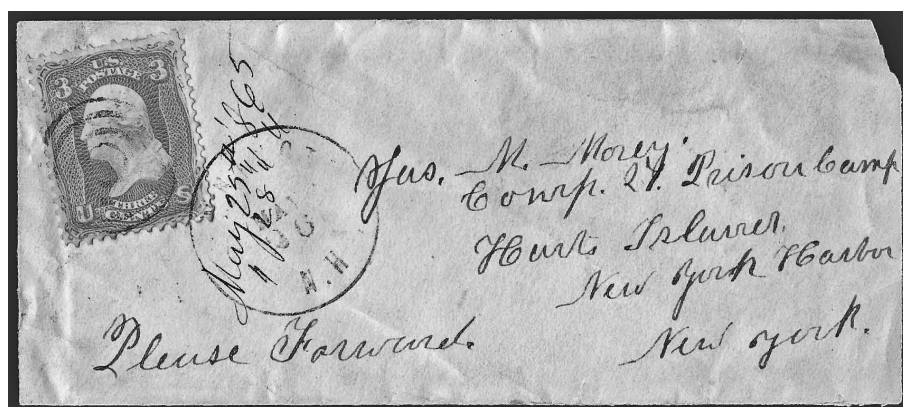 U.S.
POSTAGE
3 3
U S
THREE
CENTS
May 25th 1865
" 28 "
N.H
Jas. M. Morey.
Comp. 27. Prison Camp
Harts Island.
New York Harbor
New York.
Please Forward.